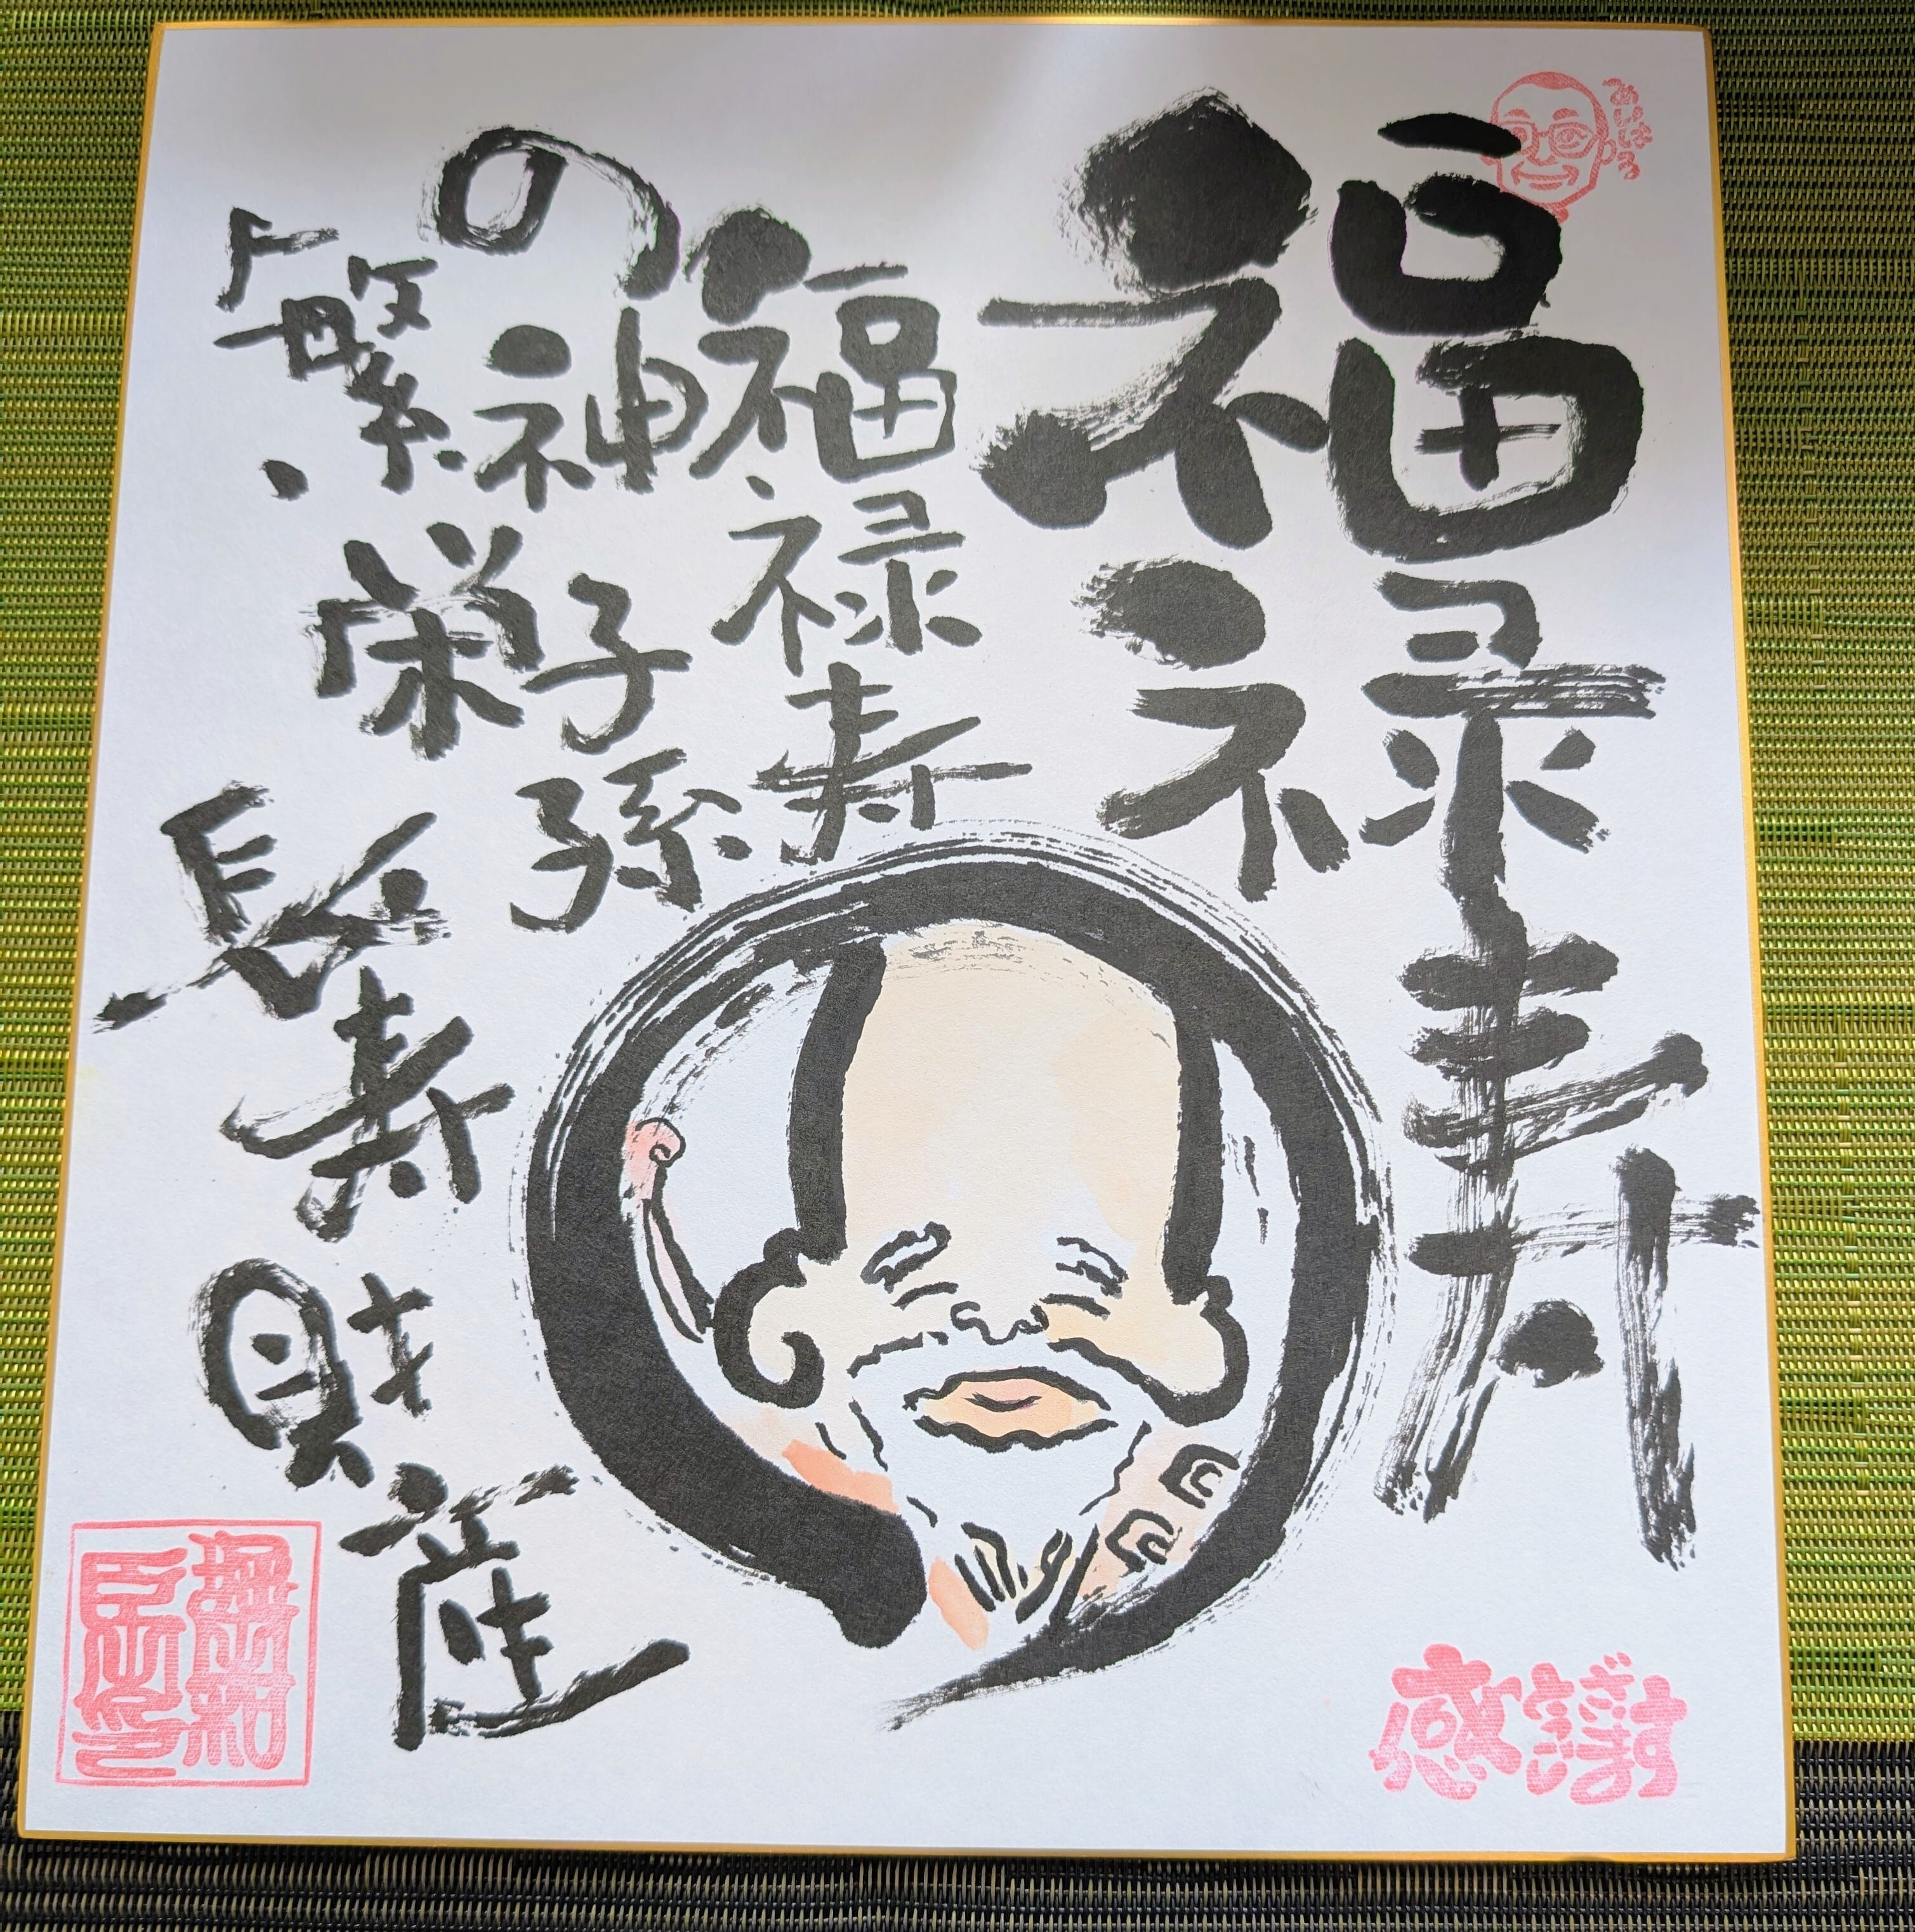 福禄寿
福禄寿
の神子孫
繁栄
長寿
財産
感謝